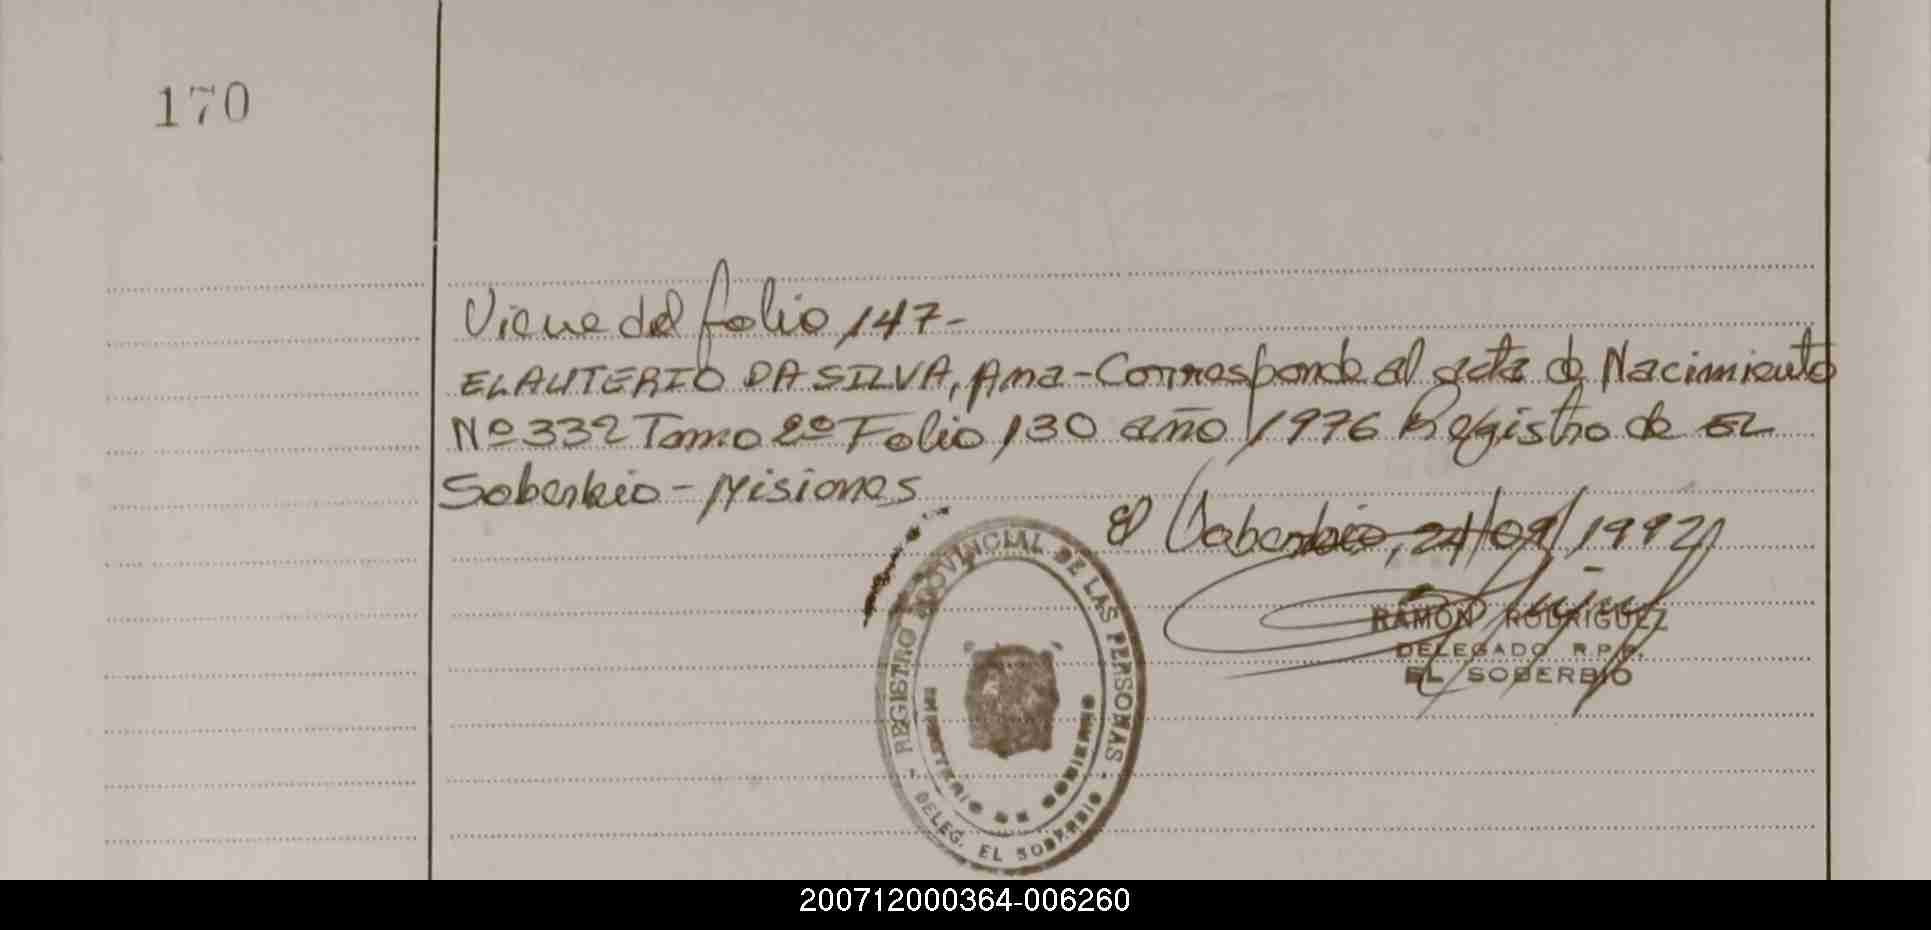 170
Viene del folio 147-
ELAUTERIO DA SILVA, Ana - Corresponde al acta de Nacimiento
Nº 332 Tomo 2º Folio 130 año 1976 Registro de EL
Soberbio - Misiones
El Soberbio, 21/09/1992
REGISTRO PROVINCIAL DE LAS PERSONAS
MINISTERIO DE GOBIERNO
DELEG. EL SOBERBIO
RAMON RODRIGUEZ
DELEGADO R.P.P.
EL SOBERBIO
200712000364-006260